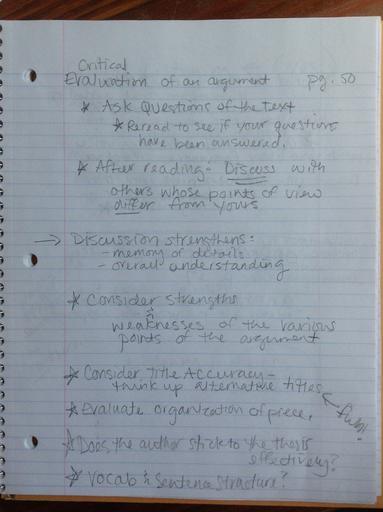 Critical
Evaluation of an argument pg. 50
* Ask Questions of the text
* Reread to see if your questions
have been answered.
* After reading: Discuss with
others whose points of view
differ from yours
→ Discussion strengthens:
- memory of details
- overall understanding
* Consider strengths
&
weaknesses of the various
points of the argument
* Consider Title Accuracy -
think up alternative titles
fun!
* Evaluate organization of piece.
* Does the author stick to the thesis
effectively?
* Vocab & Sentence Structure?